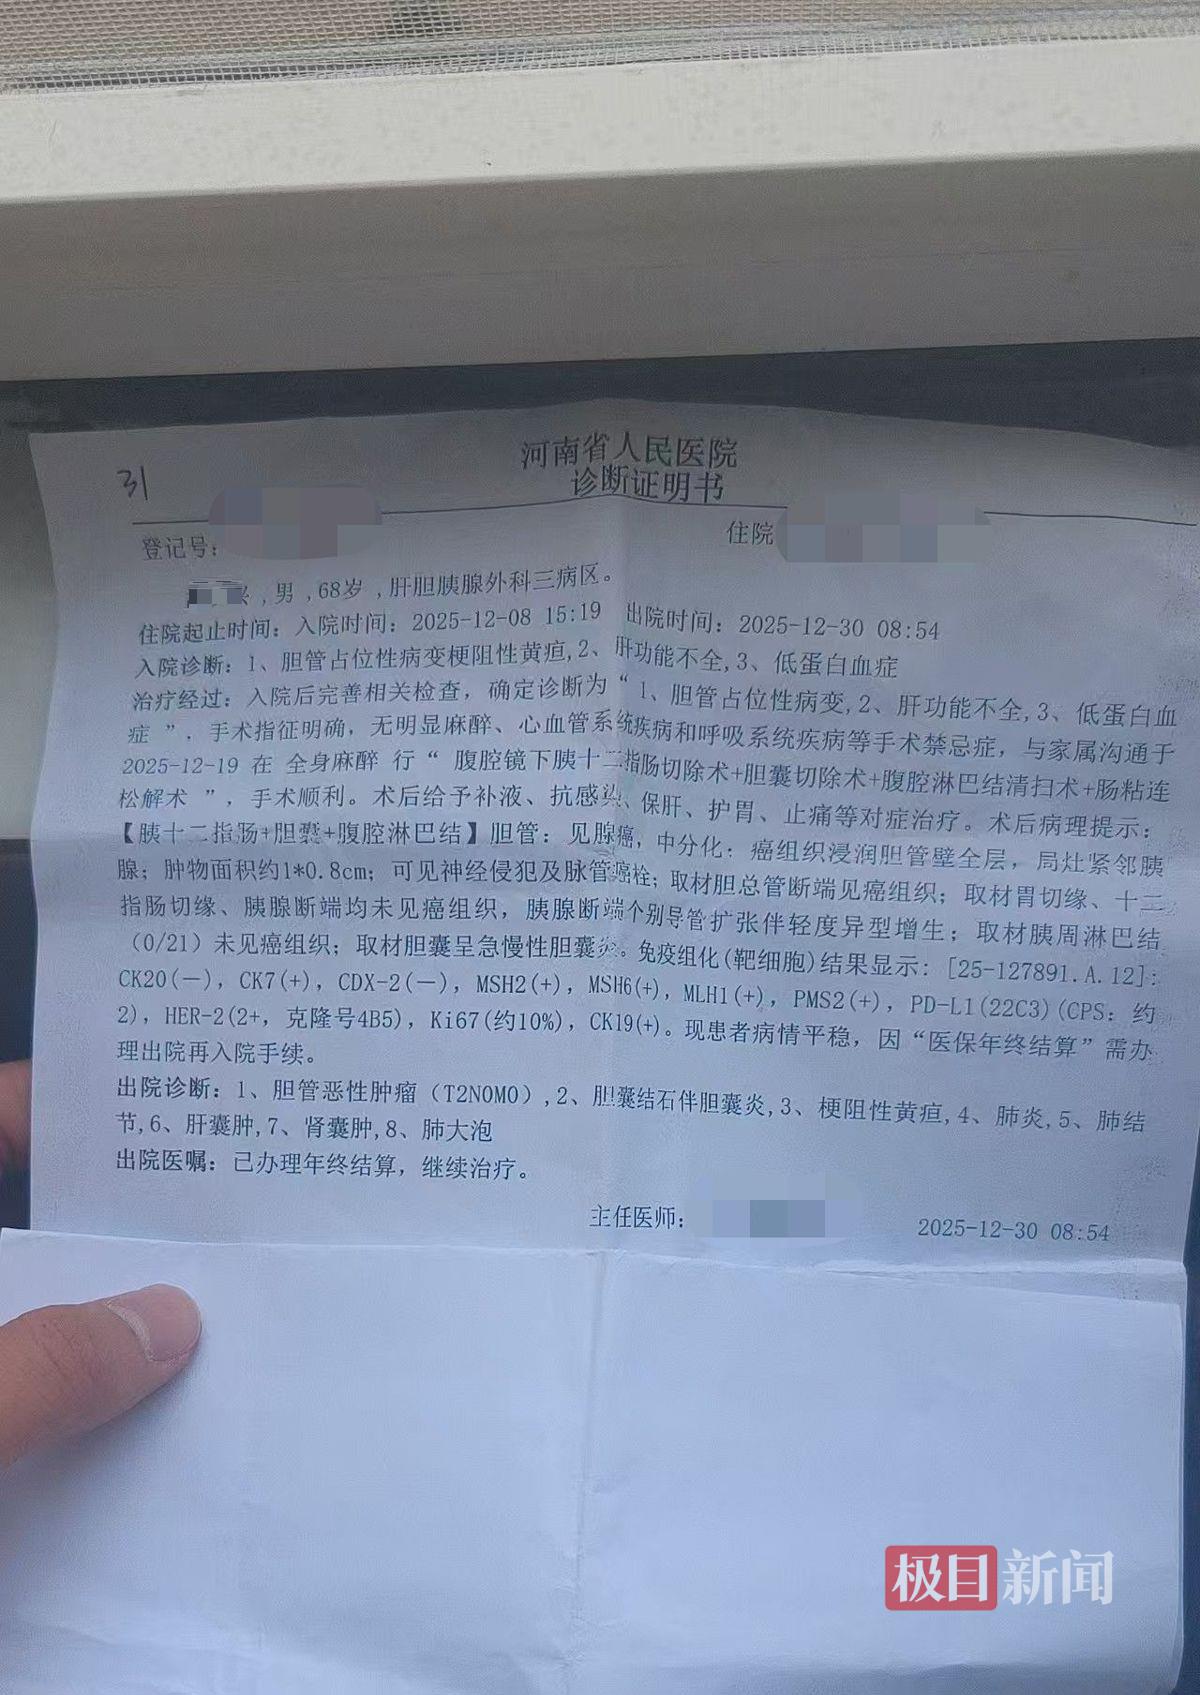 31
河南省人民医院
诊断证明书
登记号:
住院
,男,68岁,肝胆胰腺外科三病区。
住院起止时间:入院时间:2025-12-08 15:19 出院时间:2025-12-30 08:54
入院诊断:1、胆管占位性病变梗阻性黄疸,2、肝功能不全,3、低蛋白血症
治疗经过:入院后完善相关检查,确定诊断为“1、胆管占位性病变,2、肝功能不全,3、低蛋白血
症”,手术指征明确,无明显麻醉、心血管系统疾病和呼吸系统疾病等手术禁忌症,与家属沟通于
2025-12-19 在 全身麻醉 行“ 腹腔镜下胰十二指肠切除术+胆囊切除术+腹腔淋巴结清扫术+肠粘连
松解术 ”,手术顺利。术后给予补液、抗感染、保肝、护胃、止痛等对症治疗。术后病理提示:
【胰十二指肠+胆囊+腹腔淋巴结】胆管:见腺癌,中分化;癌组织浸润胆管壁全层,局灶紧邻胰
腺;肿物面积约1*0.8cm;可见神经侵犯及脉管癌栓;取材胆总管断端见癌组织;取材胃切缘、十二
指肠切缘、胰腺断端均未见癌组织,胰腺断端个别导管扩张伴轻度异型增生;取材胰周淋巴结
(0/21)未见癌组织;取材胆囊呈急慢性胆囊炎。免疫组化(靶细胞)结果显示:[25-127891.A.12]:
CK20(-),CK7(+),CDX-2(-),MSH2(+),MSH6(+),MLH1(+),PMS2(+),PD-L1(22C3)(CPS:约
2),HER-2(2+,克隆号4B5),Ki67(约10%),CK19(+)。现患者病情平稳,因“医保年终结算”需办
理出院再入院手续。
出院诊断:1、胆管恶性肿瘤(T2N0M0),2、胆囊结石伴胆囊炎,3、梗阻性黄疸,4、肺炎,5、肺结
节,6、肝囊肿,7、肾囊肿,8、肺大泡
出院医嘱:已办理年终结算,继续治疗。
主任医师:
2025-12-30 08:54
极目新闻